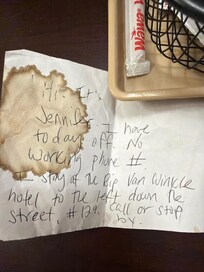 Wawa
Hi. It's
Jennifer I have
today off. No
working phone #.
I stay at the Rip Van Winkle
hotel to the left down the
street, #129. Call or stop
by.